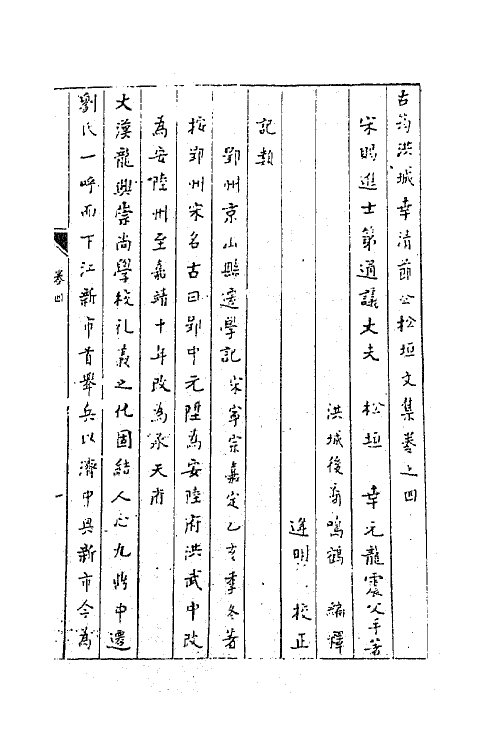 古筠洪城幸清節公松垣文集卷之四
宋賜進士第通議大夫　松垣　幸元龍震父手著
洪城後裔鳴鶴　編釋
遲明　校正
記類
郢州京山縣遷學記 宋寧宗嘉定乙亥季冬著
按郢州宋名古曰郢中元陞為安陸府洪武中改
為安陸州至嘉靖十年改為承天府
大漢龍興崇尚學校礼義之化固結人心九鼎中遷
劉氏一呼而下江新市首舉兵以濟中興新市今為
卷四
一